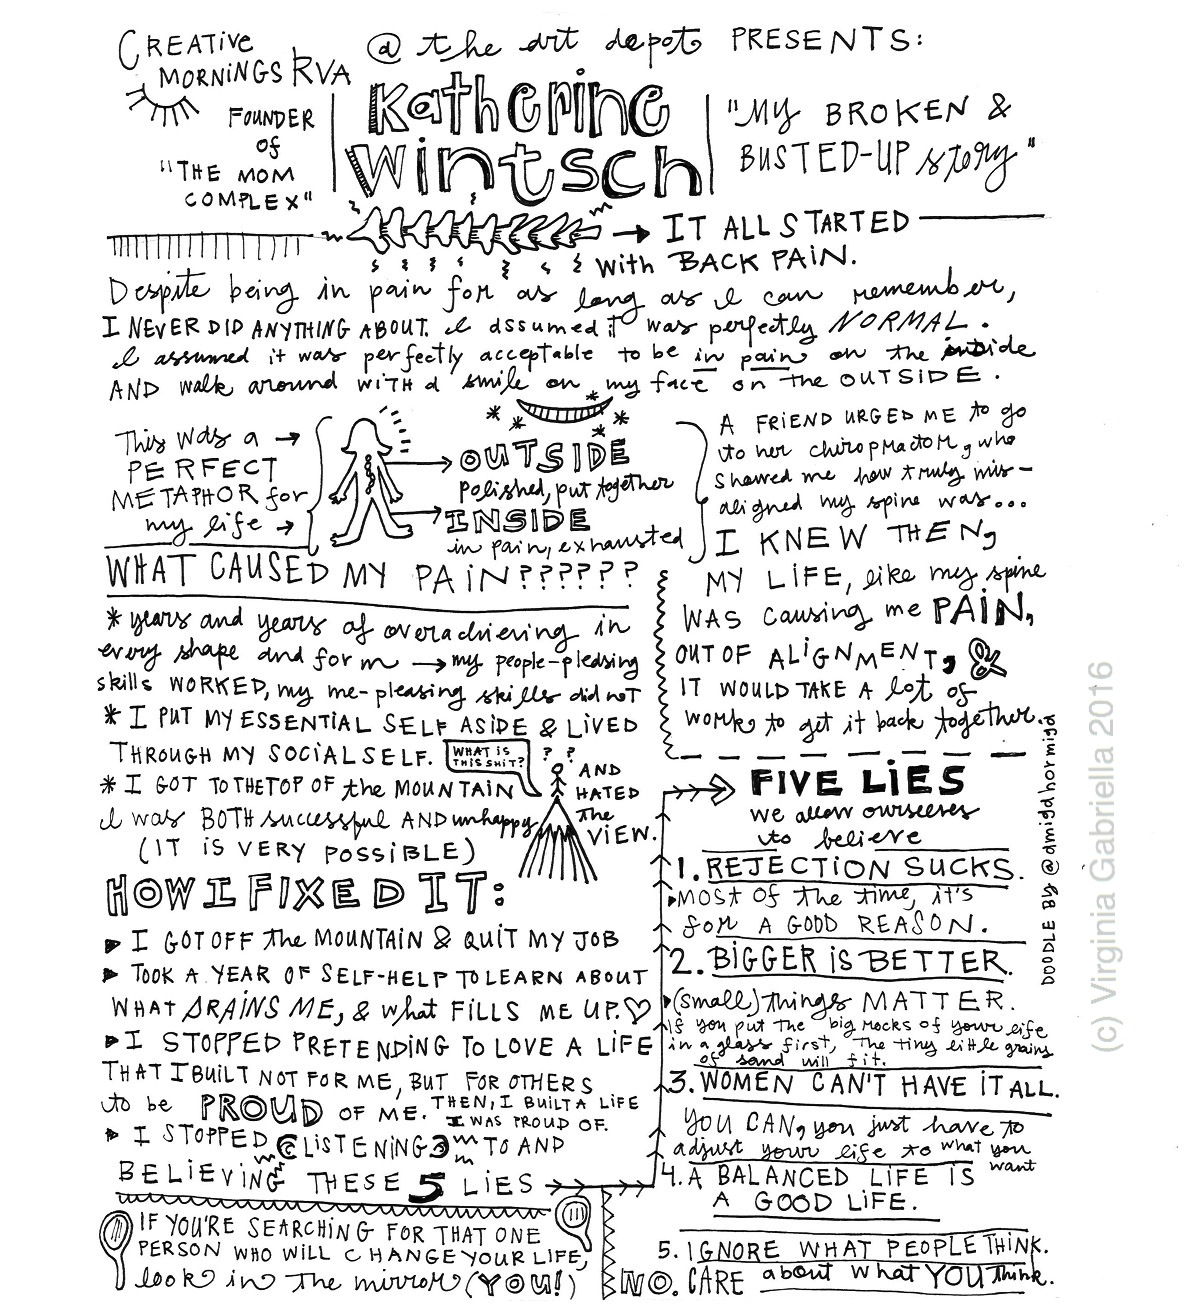 CREATIVE MORNINGS RVA
@ the art depot PRESENTS:
FOUNDER
of
"THE MOM
COMPLEX"
Katherine
Wintsch
"MY BROKEN &
BUSTED-UP story"
→ IT ALL STARTED
with BACK PAIN.
Despite being in pain for as long as I can remember,
I NEVER DID ANYTHING ABOUT. I assumed it was perfectly NORMAL.
I assumed it was perfectly acceptable to be in pain on the inside
AND walk around WITH a smile on my face on the OUTSIDE.
This was a →
PERFECT
METAPHOR for
my life →
OUTSIDE
polished, put together
INSIDE
in pain, exhausted
A FRIEND URGED ME to go
to her chiropractor, who
showed me how truly mis-
aligned my spine was...
I KNEW THEN,
MY LIFE, like my spine
WAS causing me PAIN,
OUT OF ALIGNMENT, &
IT WOULD TAKE A lot of
work to get it back together.
WHAT CAUSED MY PAIN??????
* years and years of overachieving in
every shape and form → my people-pleasing
skills WORKED, my me-pleasing skills did not
* I PUT MY ESSENTIAL SELF ASIDE & LIVED
THROUGH MY SOCIAL SELF.
WHAT IS
THIS SHIT?
? ?
* I GOT TO THE TOP OF the MOUNTAIN
AND
HATED
the
VIEW.
I was BOTH successful AND unhappy
(IT IS VERY POSSIBLE)
HOW I FIXED IT:
I GOT OFF the MOUNTAIN & QUIT MY JOB
TOOK A YEAR OF SELF-HELP TO LEARN ABOUT
WHAT DRAINS ME, & what FILLS ME UP.
I STOPPED PRETENDING TO LOVE A LIFE
THAT I BUILT NOT FOR ME, BUT FOR OTHERS
to be PROUD OF ME. THEN, I BUILT A LIFE
I WAS PROUD OF.
I STOPPED LISTENING TO AND
BELIEVING THESE 5 LIES
IF YOU'RE SEARCHING FOR THAT ONE
PERSON WHO WILL CHANGE YOUR LIFE,
look in the mirror (YOU!)
FIVE LIES
we allow ourselves
to believe
1. REJECTION SUCKS.
MOST of the time, it's
for A GOOD REASON.
2. BIGGER IS BETTER.
(small) things MATTER.
If you put the big rocks of your life
in a glass first, the tiny little grains
of sand will fit.
3. WOMEN CAN'T HAVE IT ALL.
YOU CAN, you just have to
adjust your life to what you
want
4. A BALANCED LIFE IS
A GOOD LIFE.
5. IGNORE WHAT PEOPLE THINK.
NO. CARE about what YOU think.
DOODLE BY @amigahormiga
(c) Virginia Gabriella 2016